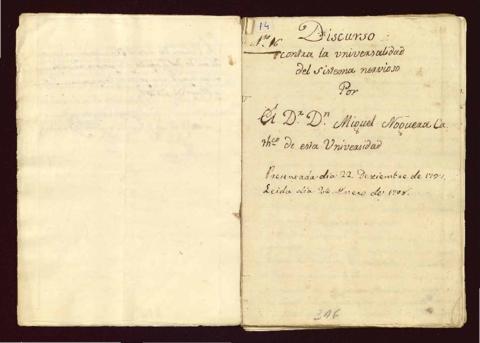 14
Nº 16
Discurso
contra la universalidad
del sistema nervioso
Por
El Dr. Dn. Miquel Noguera Ca-
thco de esta Universidad
Presentada dia 22 Deziembre de
Leida dia de Enero de
346